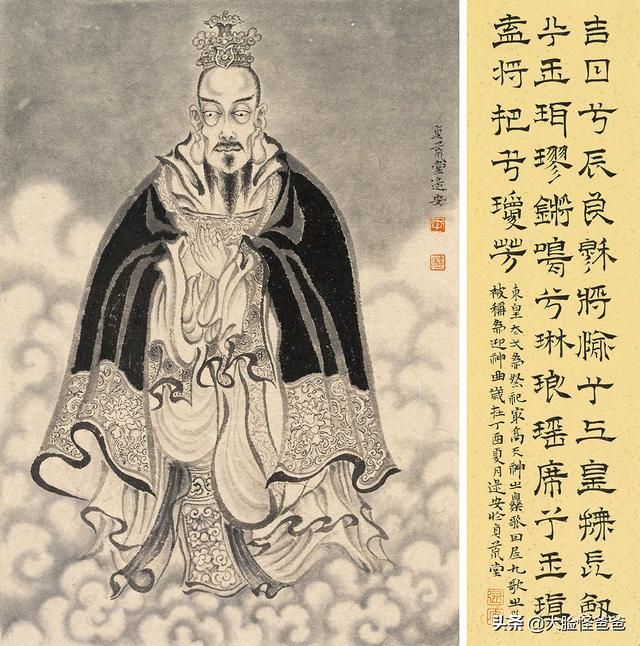 吉日兮辰良穆將愉兮上皇撫長劍
兮玉珥璆鏘鳴兮琳琅瑤席兮玉瑱
盍將把兮瓊芳
東皇太弌為祭祀最高天神之樂歌屈九歌之
被稱為迎神曲歲在丁酉夏月逯安於貞景堂
貞景堂逯安
头条 @大脸怪爸爸